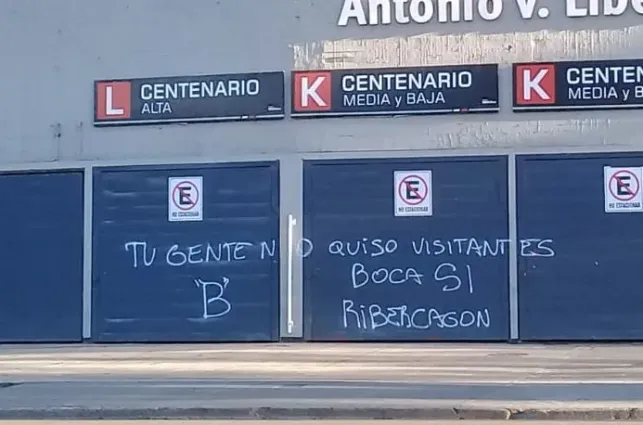 Antonio V. Libe
L CENTENARIO
ALTA
K CENTENARIO
MEDIA y BAJA
K CENTEN
MEDIA y B
E
NO ESTACIONAR
E
NO ESTACIONAR
E
NO ESTACIONAR
TU GENTE NO QUISO VISITANTES
"B"
BOCA SI
RIBERCAGON